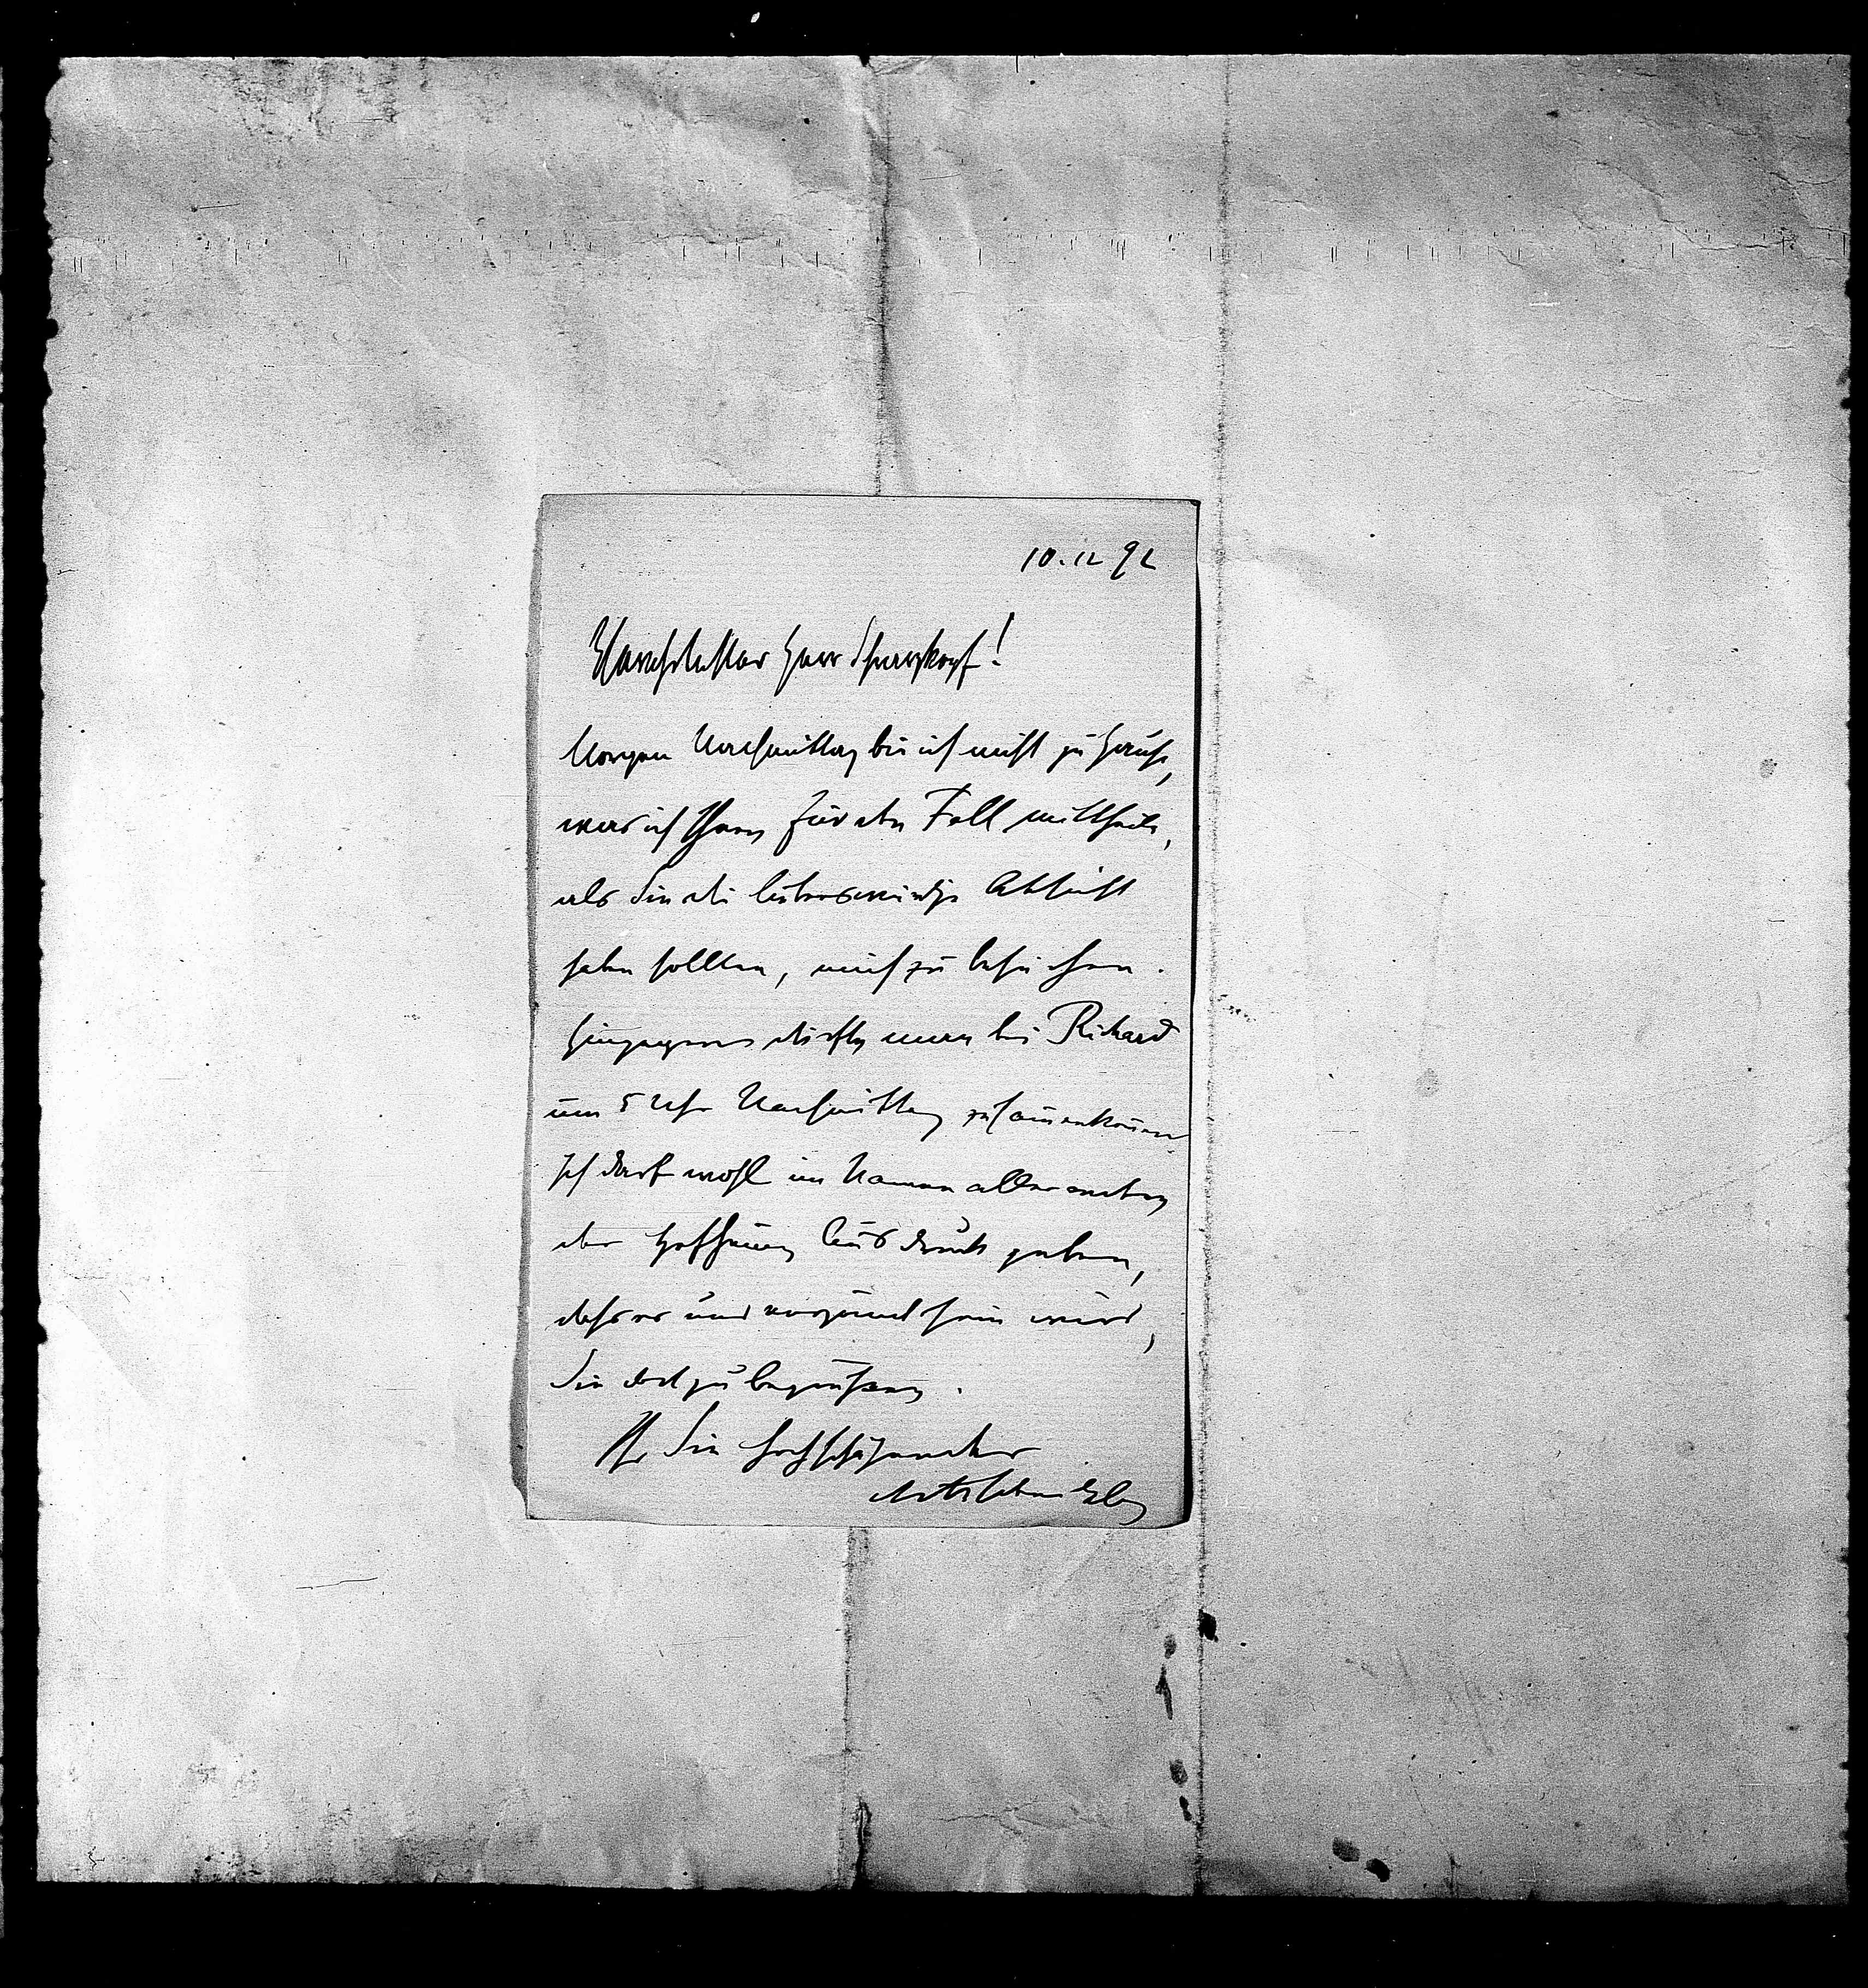 10. 12 92
Verehrtester Herr Schwarzkopf!
Morgen Nachmittag bin ich nicht zu Hause,
was ich Ihnen für den Fall mittheile,
als Sie die liebenswürdige Absicht
haben sollten, mich zu besuchen.
Hingegen dürfte man bei Richard
um 5 Uhr Nachmittag zusammenkommen
Ich darf wohl im Namen aller andern
der Hoffnung Ausdruck geben,
dass es uns vergönnt sein wird,
Sie dort zu begrüßen.
Ihr Sie hochschätzender
ArthSchnitzler